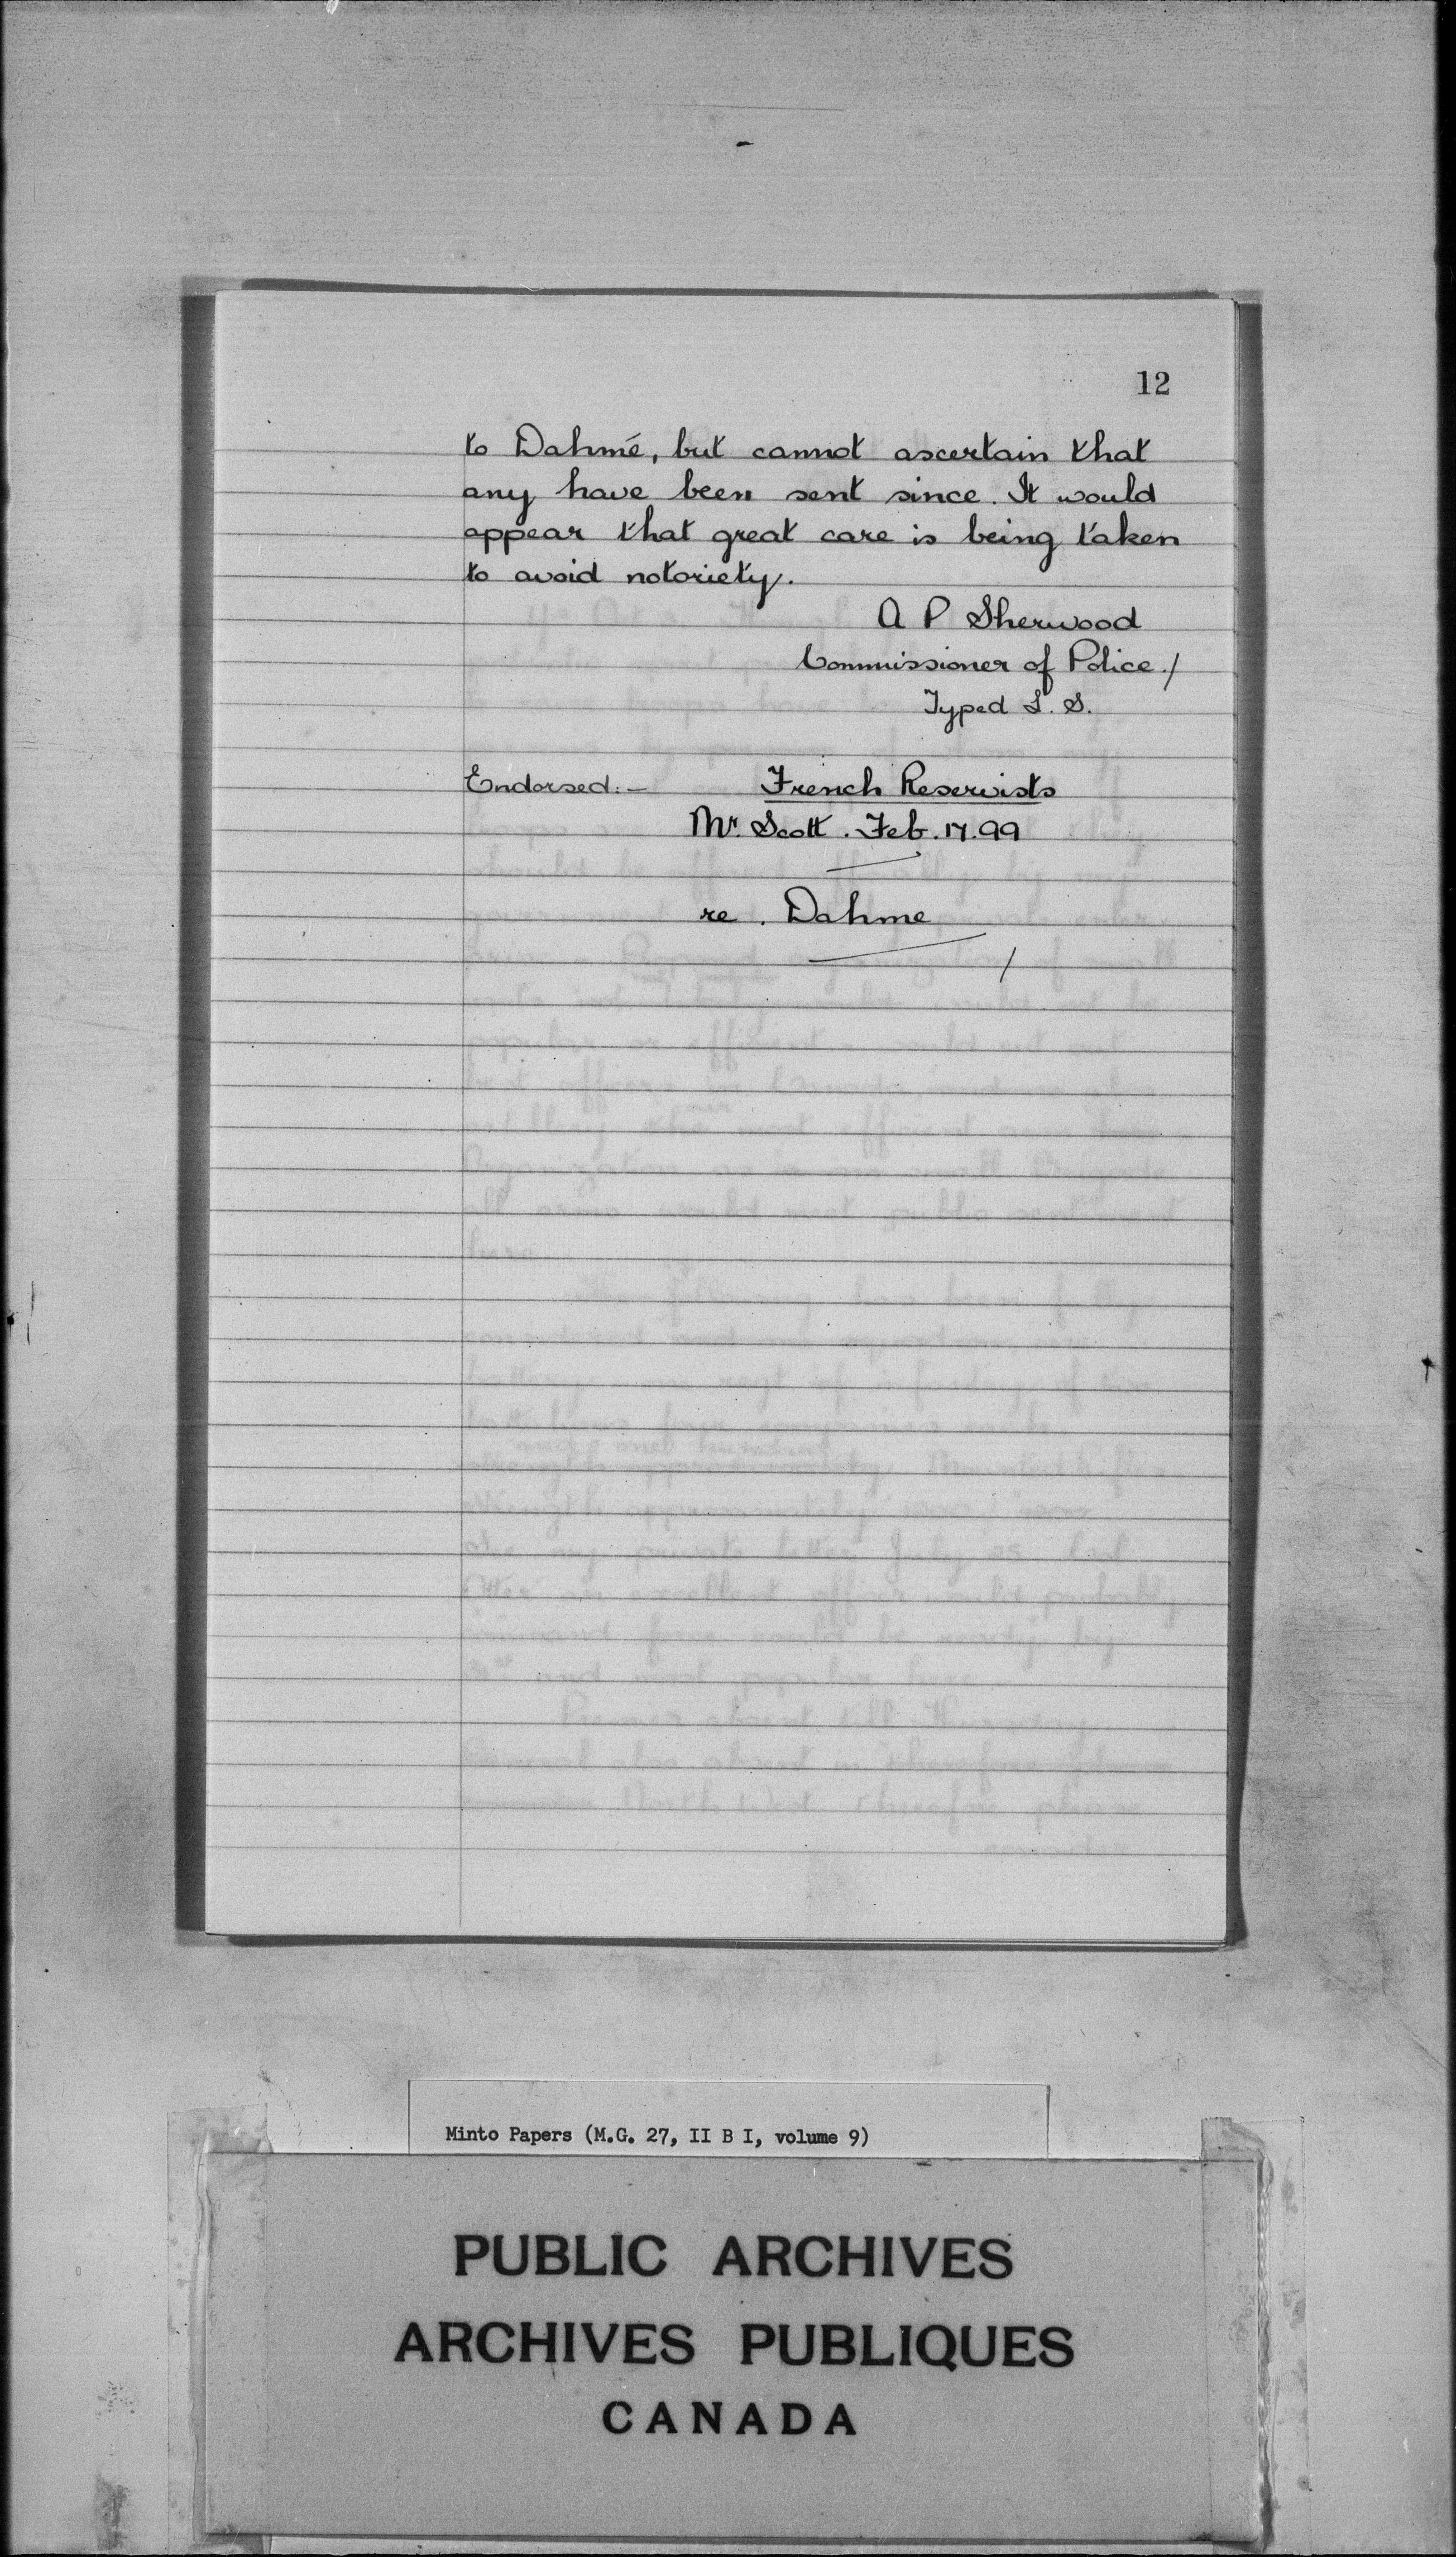 12
to Dahmé, but cannot ascertain that
any have been sent since. It would
appear that great care is being taken
to avoid notoriety.
A P Sherwood
Commissioner of Police./
Typed L. S.
Endorsed:- French Reservists
Mr. Scott. Feb. 17. 99
re. Dahme
/
Minto Papers (M.G. 27, II B I, volume 9)
PUBLIC ARCHIVES
ARCHIVES PUBLIQUES
CANADA